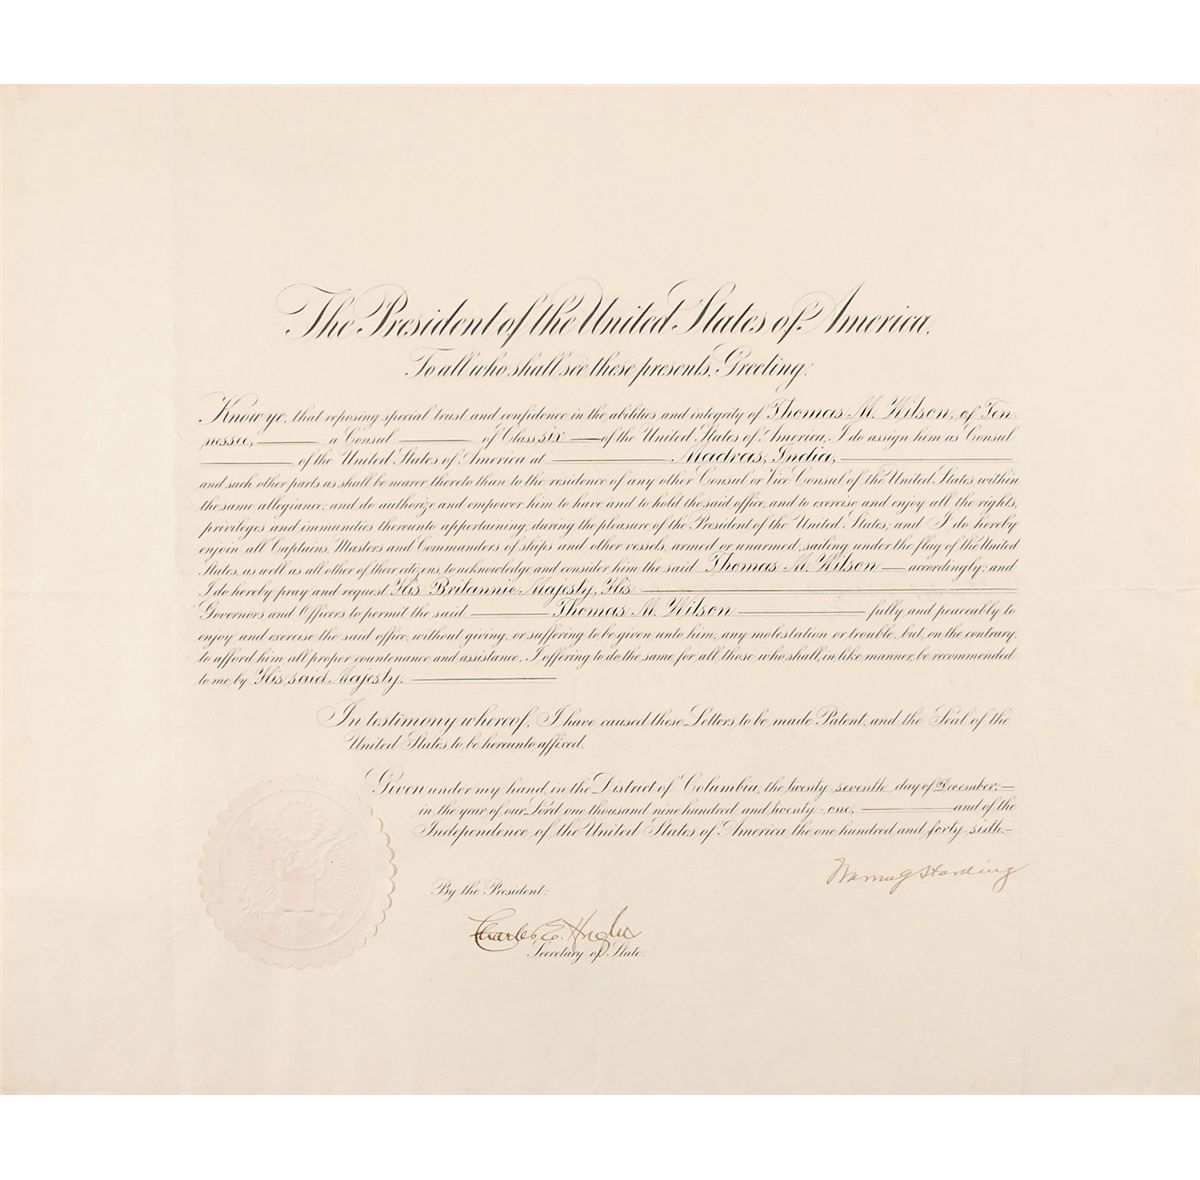 The President of the United States of America.
To all who shall see these presents, Greeting:
Know ye, that reposing special trust and confidence in the abilities and integrity of Thomas M. Wilson, of Ten-
nessee, a Consul of Class six of the United States of America, I do assign him as Consul
of the United States of America at Madras, India,
and such other parts as shall be nearer thereto than to the residence of any other Consul or Vice Consul of the United States within
the same allegiance; and do authorize and empower him to have and to hold the said office, and to exercise and enjoy all the rights,
privileges and immunities thereunto appertaining, during the pleasure of the President of the United States; and I do hereby
enjoin all Captains, Masters and Commanders of ships and other vessels, armed or unarmed, sailing under the flag of the United
States, as well as all other of their citizens, to acknowledge and consider him the said Thomas M. Wilson accordingly; and
I do hereby pray and request His Britannic Majesty, His
Governors and Officers to permit the said Thomas M. Wilson fully and peaceably to
enjoy and exercise the said office, without giving, or suffering to be given unto him, any molestation or trouble, but, on the contrary,
to afford him all proper countenance and assistance; I offering to do the same for all those who shall, in like manner, be recommended
to me by His said Majesty.
In testimony whereof, I have caused these Letters to be made Patent, and the Seal of the
United States to be hereunto affixed.
Given under my hand, in the District of Columbia, the twenty seventh day of December,
in the year of our Lord one thousand nine hundred and twenty-one, and of the
Independence of the United States of America the one hundred and forty sixth.
Warren G Harding
By the President:
Charles E. Hughes
Secretary of State.